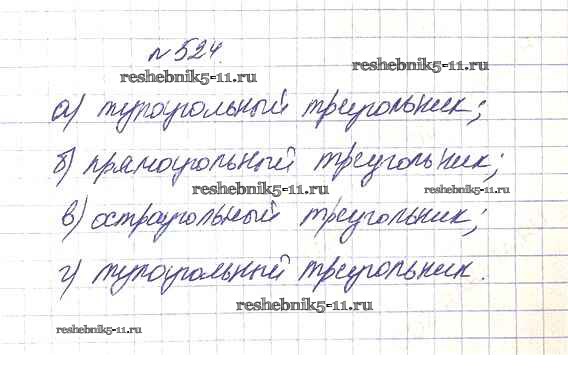 №524.
reshebnik5-11.ru
reshebnik5-11.ru
а) тупоугольный треугольник;
б) прямоугольный треугольник;
reshebnik5-11.ru
reshebnik5-11.ru
в) остроугольный треугольник;
г) тупоугольный треугольник.
reshebnik5-11.ru
reshebnik5-11.ru